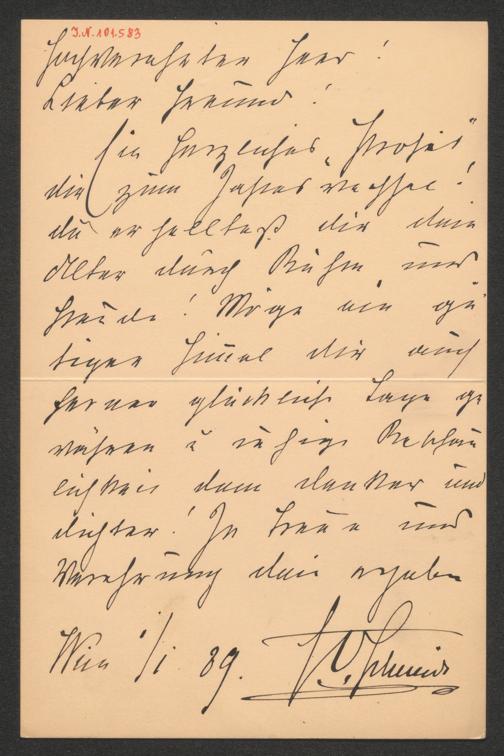 J.N. 101.583
Hochverehrter Herr!
Lieber Freund!
Ein herzliches „Prosit"
dir zum Jahreswechsel!
du erhelltest dir dein
Alter durch Ruhm und
Freude! Möge ein gü
tiger Himmel dir auch
ferner glückliche Tage ge
währen u ruhige Beschau
lichkeit dem Denker und
Dichter! In Treue und
Verehrung dein ergeben
Wien 1/1. 89.